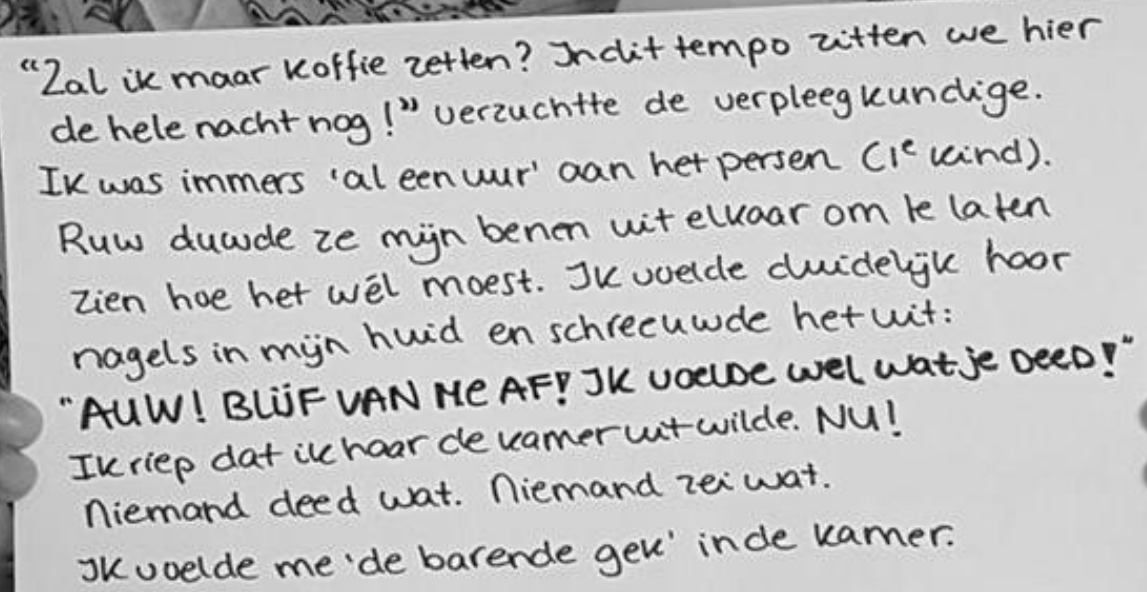 “Zal ik maar koffie zetten? In dit tempo zitten we hier
de hele nacht nog!” verzuchtte de verpleegkundige.
Ik was immers 'al een uur' aan het persen (1e kind).
Ruw duwde ze mijn benen uit elkaar om te laten
zien hoe het wél moest. Ik voelde duidelijk haar
nagels in mijn huid en schreeuwde het uit:
"AUW! BLIJF VAN ME AF! IK VOELDE WEL WAT JE DEED!"
Ik riep dat ik haar de kamer uit wilde. NU!
Niemand deed wat. Niemand zei wat.
Ik voelde me 'de barende gek' in de kamer.